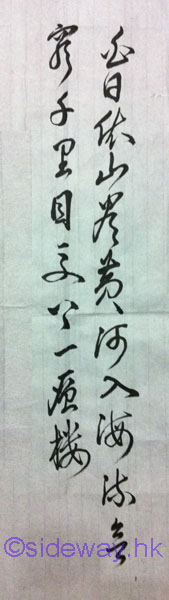 白日依山尽黄河入海流欲
穷千里目更上一层楼
©sideway.hk